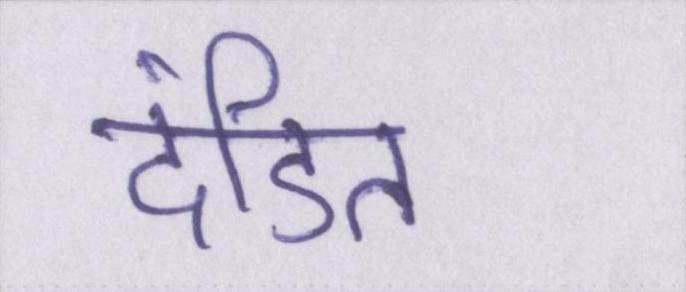 दंडित